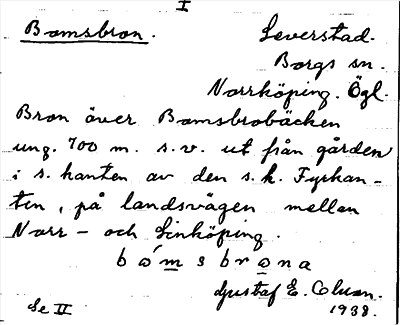 I
Bomsbron. Leverstad.
Borgs sn.
Norrköping. Ögl.
Bron över Bomsbrobäcken
ung. 700 m. s.v. ut från gården
i s. kanten av den s.k. Fyrkan-
ten, på landsvägen mellan
Norr- och Linköping.
bómsbrona
Gustaf E.
Se II 1938.